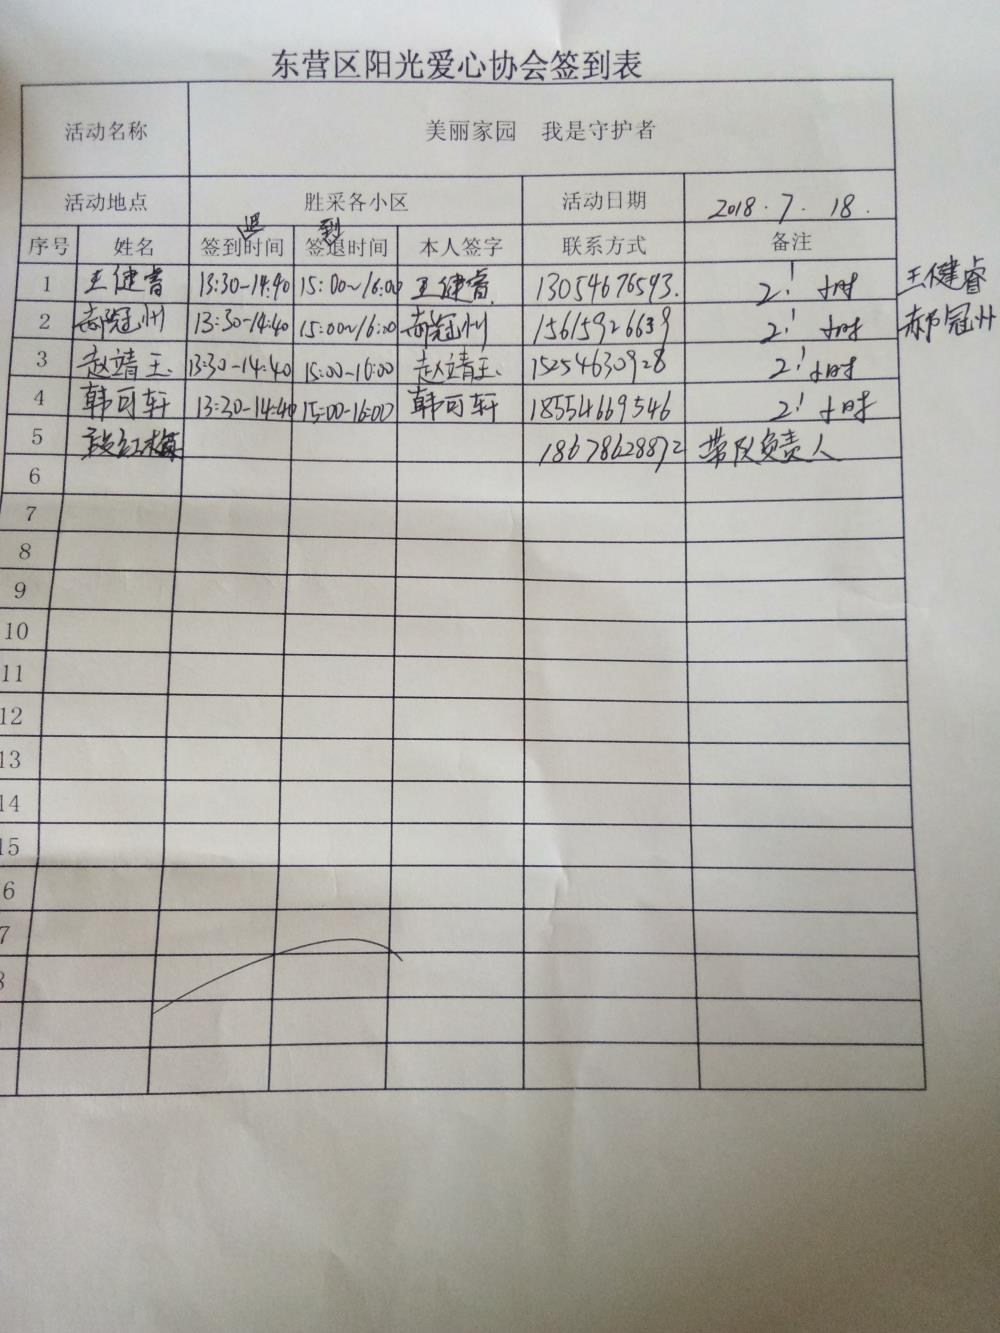 东营区阳光爱心协会签到表
活动名称 美丽家园 我是守护者
活动地点 胜采各小区 活动日期 2018.7.18.
退 到
序号 姓名 签到时间 签退时间 本人签字 联系方式 备注
1 王健睿 13:30-14:40 15:00~16:00 王健睿 13054676593. 2小时 王健睿
2 郝冠州 13:30-14:40 15:00~16:00 郝冠州 15615926639 2小时 郝冠州
3 赵靖玉 13:30-14:40 15:00-16:00 赵靖玉 15254630928 2小时
4 韩可轩 13:30-14:40 15:00-16:00 韩可轩 18554669546 2小时
5 红梅 18678628872 带队负责人
6
7
8
9
10
11
12
13
14
15
6
7
8